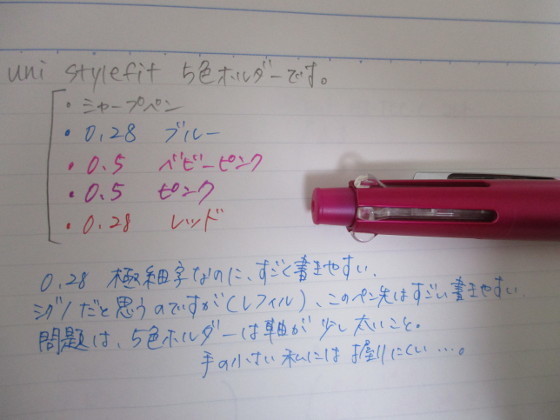 uni stylefit 5色ホルダーです。
・シャープペン
・0.28 ブルー
・0.5 ベビーピンク
・0.5 ピンク
・0.28 レッド
0.28 極細字なのに、すごく書きやすい.
シグノだと思うのですが(レフィル)、このペン先はすごい書きやすい.
問題は、5色ホルダーは軸が少し太いこと。
手の小さい私には握りにくい…。